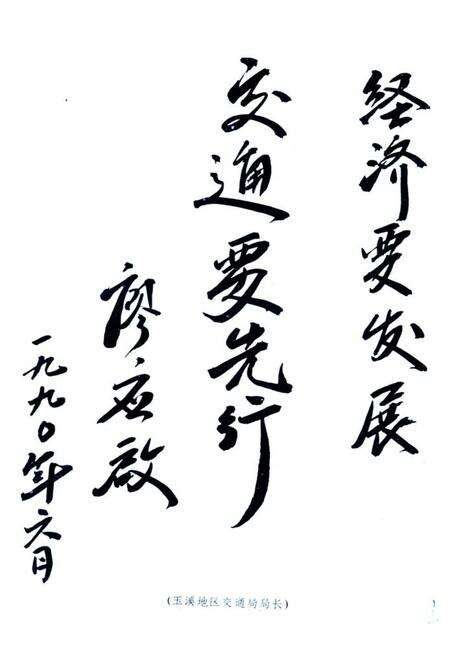 经济要发展
交通要先行
廖应启
一九九〇年六月
(玉溪地区交通局局长)
1